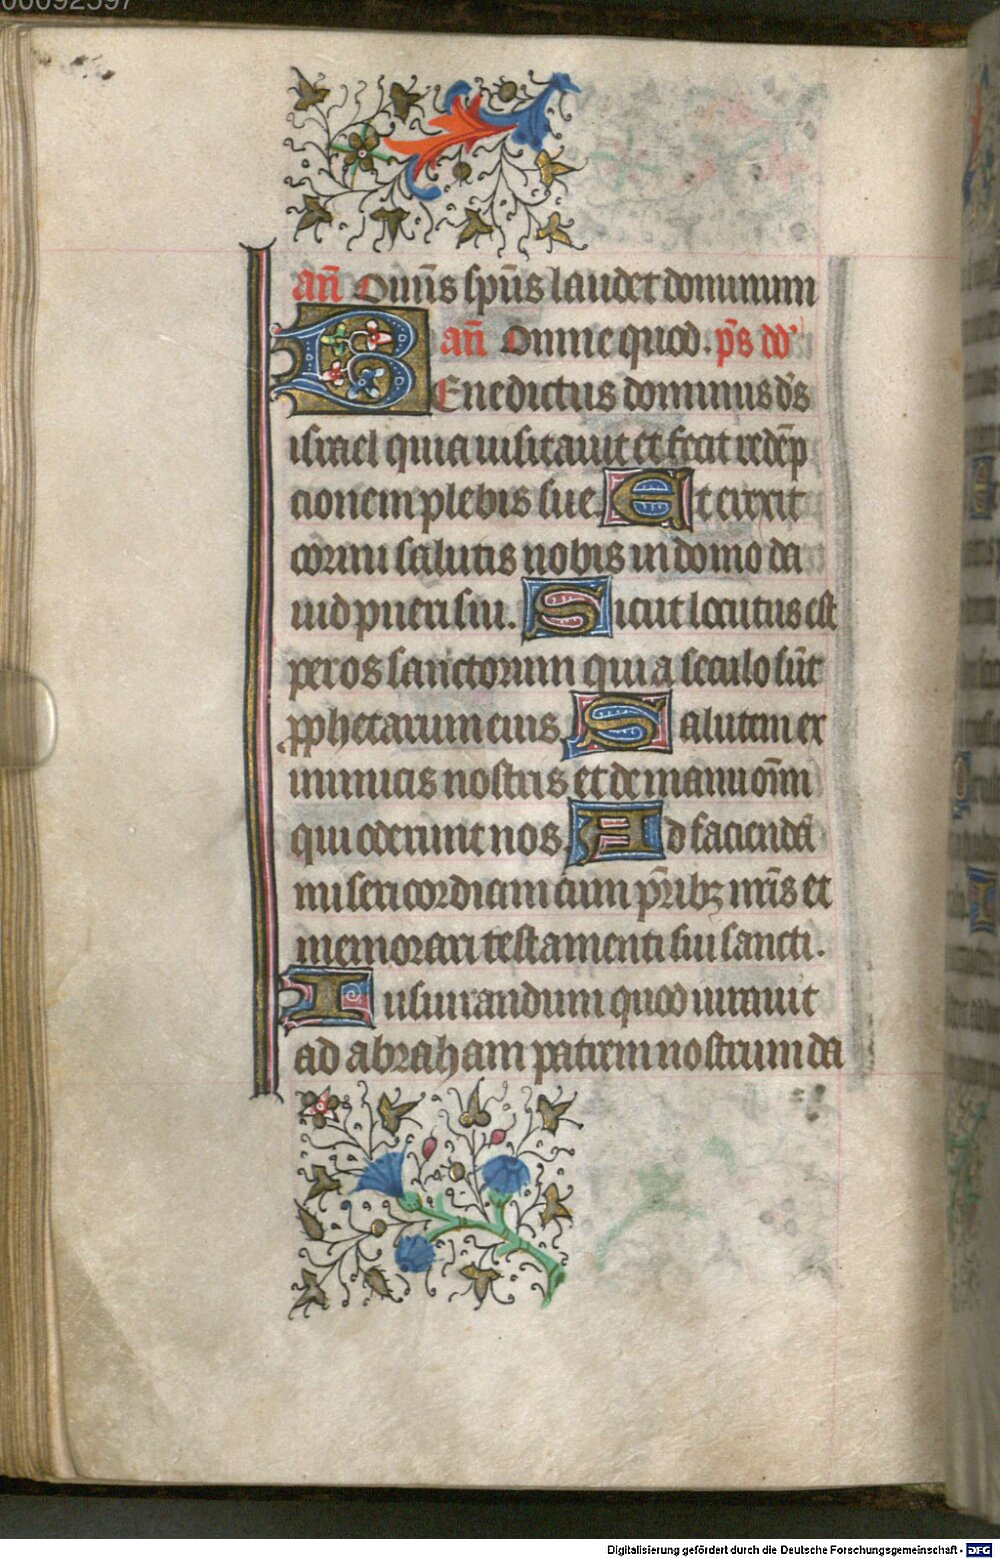 00092597
an̄ Omīs sp̄us laudet dominum
an̄ Omne quod. p̄s dd'
BEnedictus dominus d̄s
israel quia uisitauit et fecit redēp
cionem plebis sue. Et erexit
cornu salutis nobis in domo da
uid pueri sui. Sicut locutus est
per os sanctorum qui a seculo sūt
ꝓphetarum eius. Salutem ex
inimicis nostris et de manu oīm
qui oderunt nos. Ad faciendā
misericordiam cum p̄ribꝫ nr̄is et
memorari testamenti sui sancti.
Iusiurandum quod iurauit
ad abraham patrem nostrum da
Digitalisierung gefördert durch die Deutsche Forschungsgemeinschaft - DFG